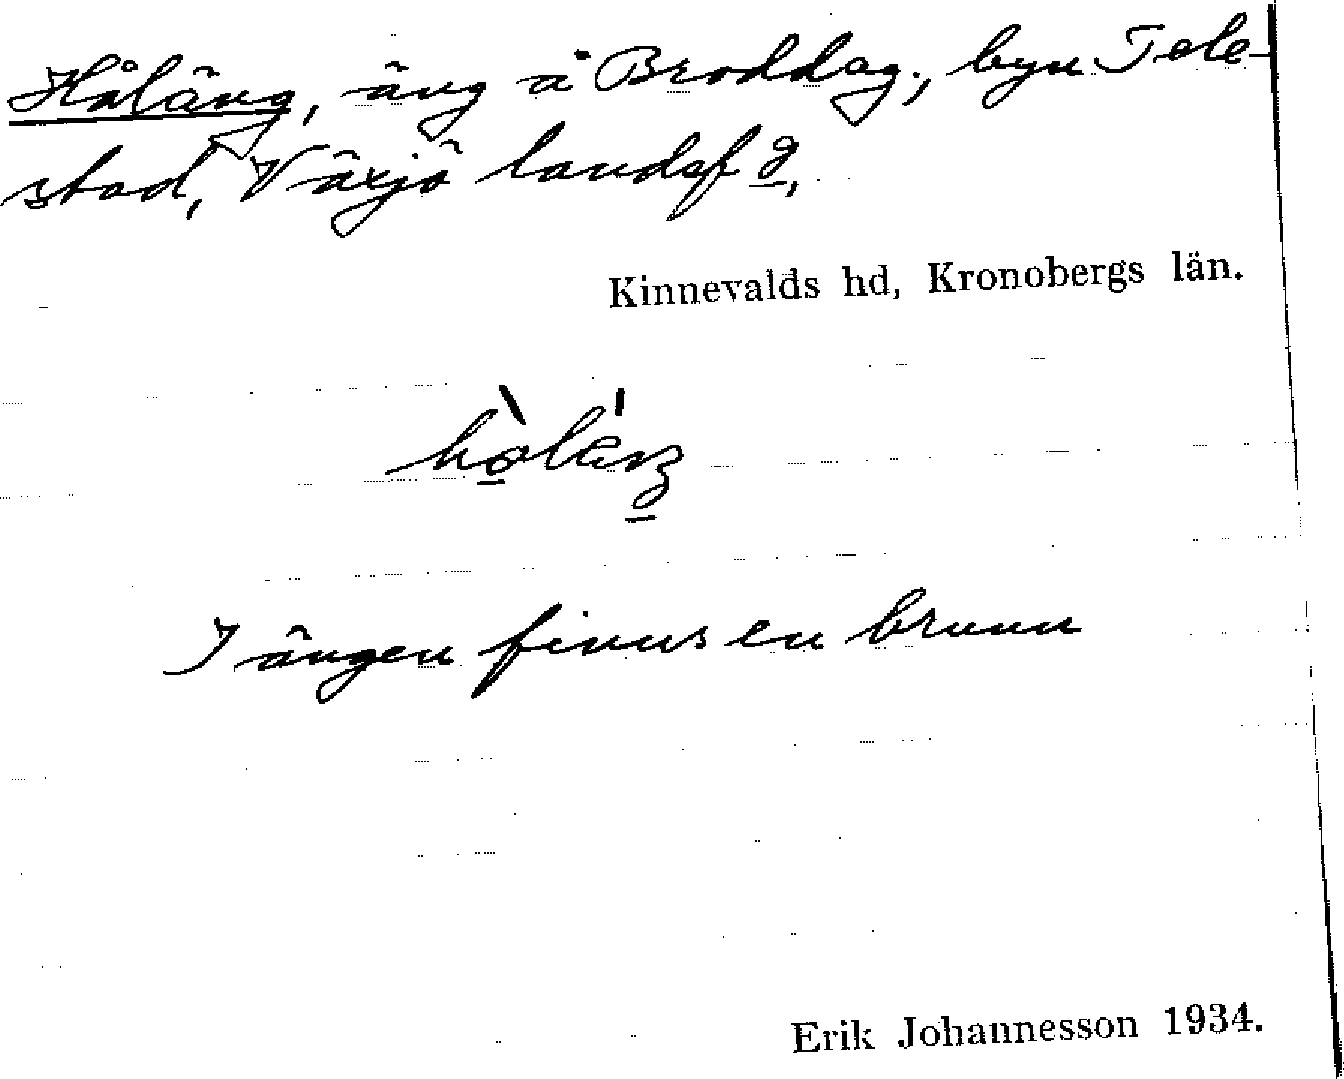 Håläng, äng å Broddag., byn Tele-
stad, Växjö landsf d,
Kinnevalds hd, Kronobergs län.
I ängen finns en brunn
Erik Johannesson 1934.